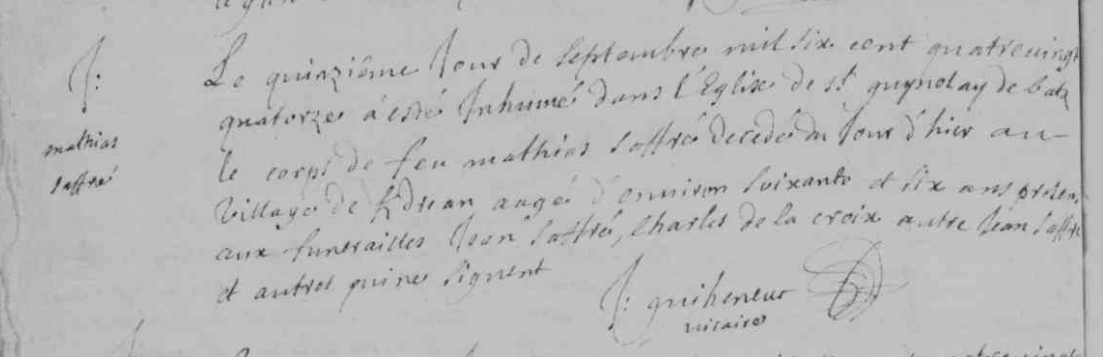 J:
mathias
saffré
Le quinziéme Jour de septembre mil six cent quatrevingt
quatorze á esté Inhumé dans l'Eglise de st guynolay de batz
le corps de feu mathias saffré decedé du Jour d'hier au
village de Kdrean augé d'environ soixante et six ans présens
aux funerailles Jean saffré, Charles de la croix autre Jean saffré
et autres quine signent
J: guiheneuf
vicaire